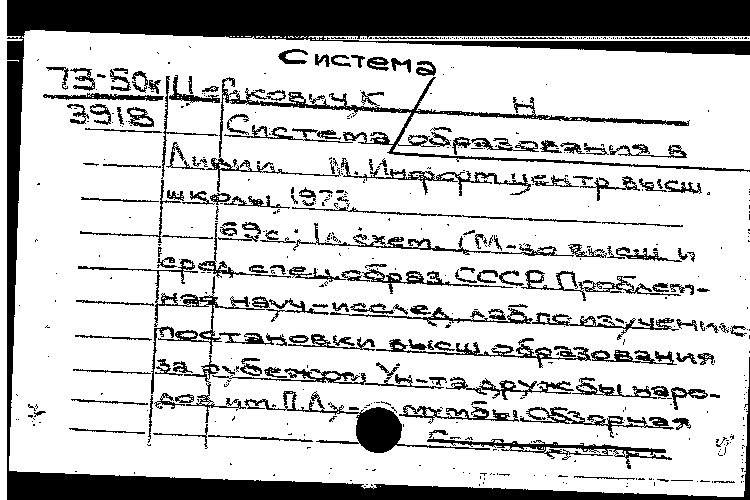 Система
73-50к Цепкович, К Н
3918 Система образования в
Ливии. М., Информ.центр высш.
школы, 1973.
69с.; 1л. схем. (М-во высш. и
сред. спец. образ. СССР. Проблем-
ная науч.-исслед. лаб. по изучению
постановки высш. образования
за рубежом Ун-та дружбы наро-
дов им. П. Лумумбы. Обзорная
См. след. карт.